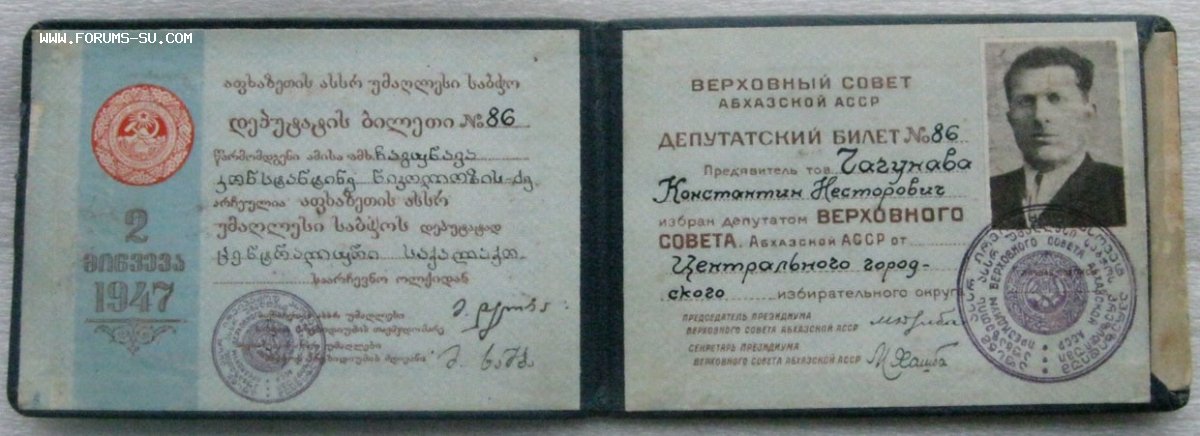 WWW.FORUMS-SU.COM
2
მოწვევა
1947
აფხაზეთის ასსრ უმაღლესი საბჭო
დეპუტატის ბილეთი №86
წარმომდგენი ამისა ამხ. ჩაგუნავა
კონსტანტინე
არჩეულია აფხაზეთის ასსრ
უმაღლესი საბჭოს დეპუტატად
ცენტრალური საქალაქო
საარჩევნო ოლქიდან
ВЕРХОВНЫЙ СОВЕТ
АБХАЗСКОЙ АССР
ДЕПУТАТСКИЙ БИЛЕТ №86
Предявитель тов. Чагунава
Константин Несторович
избран депутатом ВЕРХОВНОГО
СОВЕТА Абхазской АССР от
Центрального город-
ского избирательного округа
ПРЕДСЕДАТЕЛЬ ПРЕЗИДИУМА
ВЕРХОВНОГО СОВЕТА АБХАЗСКОЙ АССР
СЕКРЕТАРЬ ПРЕЗИДИУМА
ВЕРХОВНОГО СОВЕТА АБХАЗСКОЙ АССР
М Хашба